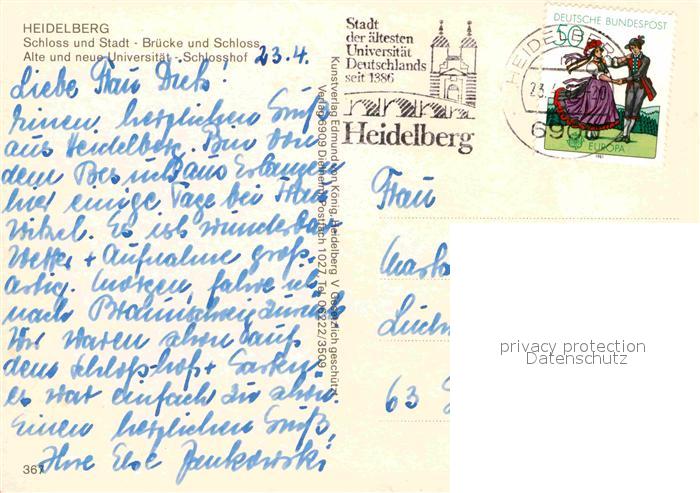 HEIDELBERG
Schloss und Stadt - Brücke und Schloss
Alte und neue Universität - Schlosshof
23.4.
Liebe Frau
Einen herzlichen Gruß
aus Heidelberg. Bin von
dem Besuch aus Erlangen
hier einige Tage bei Frau
Witzel. Es ist wunderbar
Wetter + Aufnahme groß-
artig. Morgen fahre ich
nach Braunschweig zurück
Wir waren schon auf
dem Schloßhof + Garten
es war einfach zu schön.
Einen herzlichen Gruß,
Ihre Else Jankowski
367
Kunstverlag Edmund von König, Heidelberg
Verlag 6909 Dielheim, Postfach 1027, Tel. 06222/3509
Stadt
der ältesten
Universität
Deutschlands
seit 1886
Heidelberg
HEIDELBERG
23.
690
DEUTSCHE BUNDESPOST
50
EUROPA
1981
Frau
63
privacy protection
Datenschutz